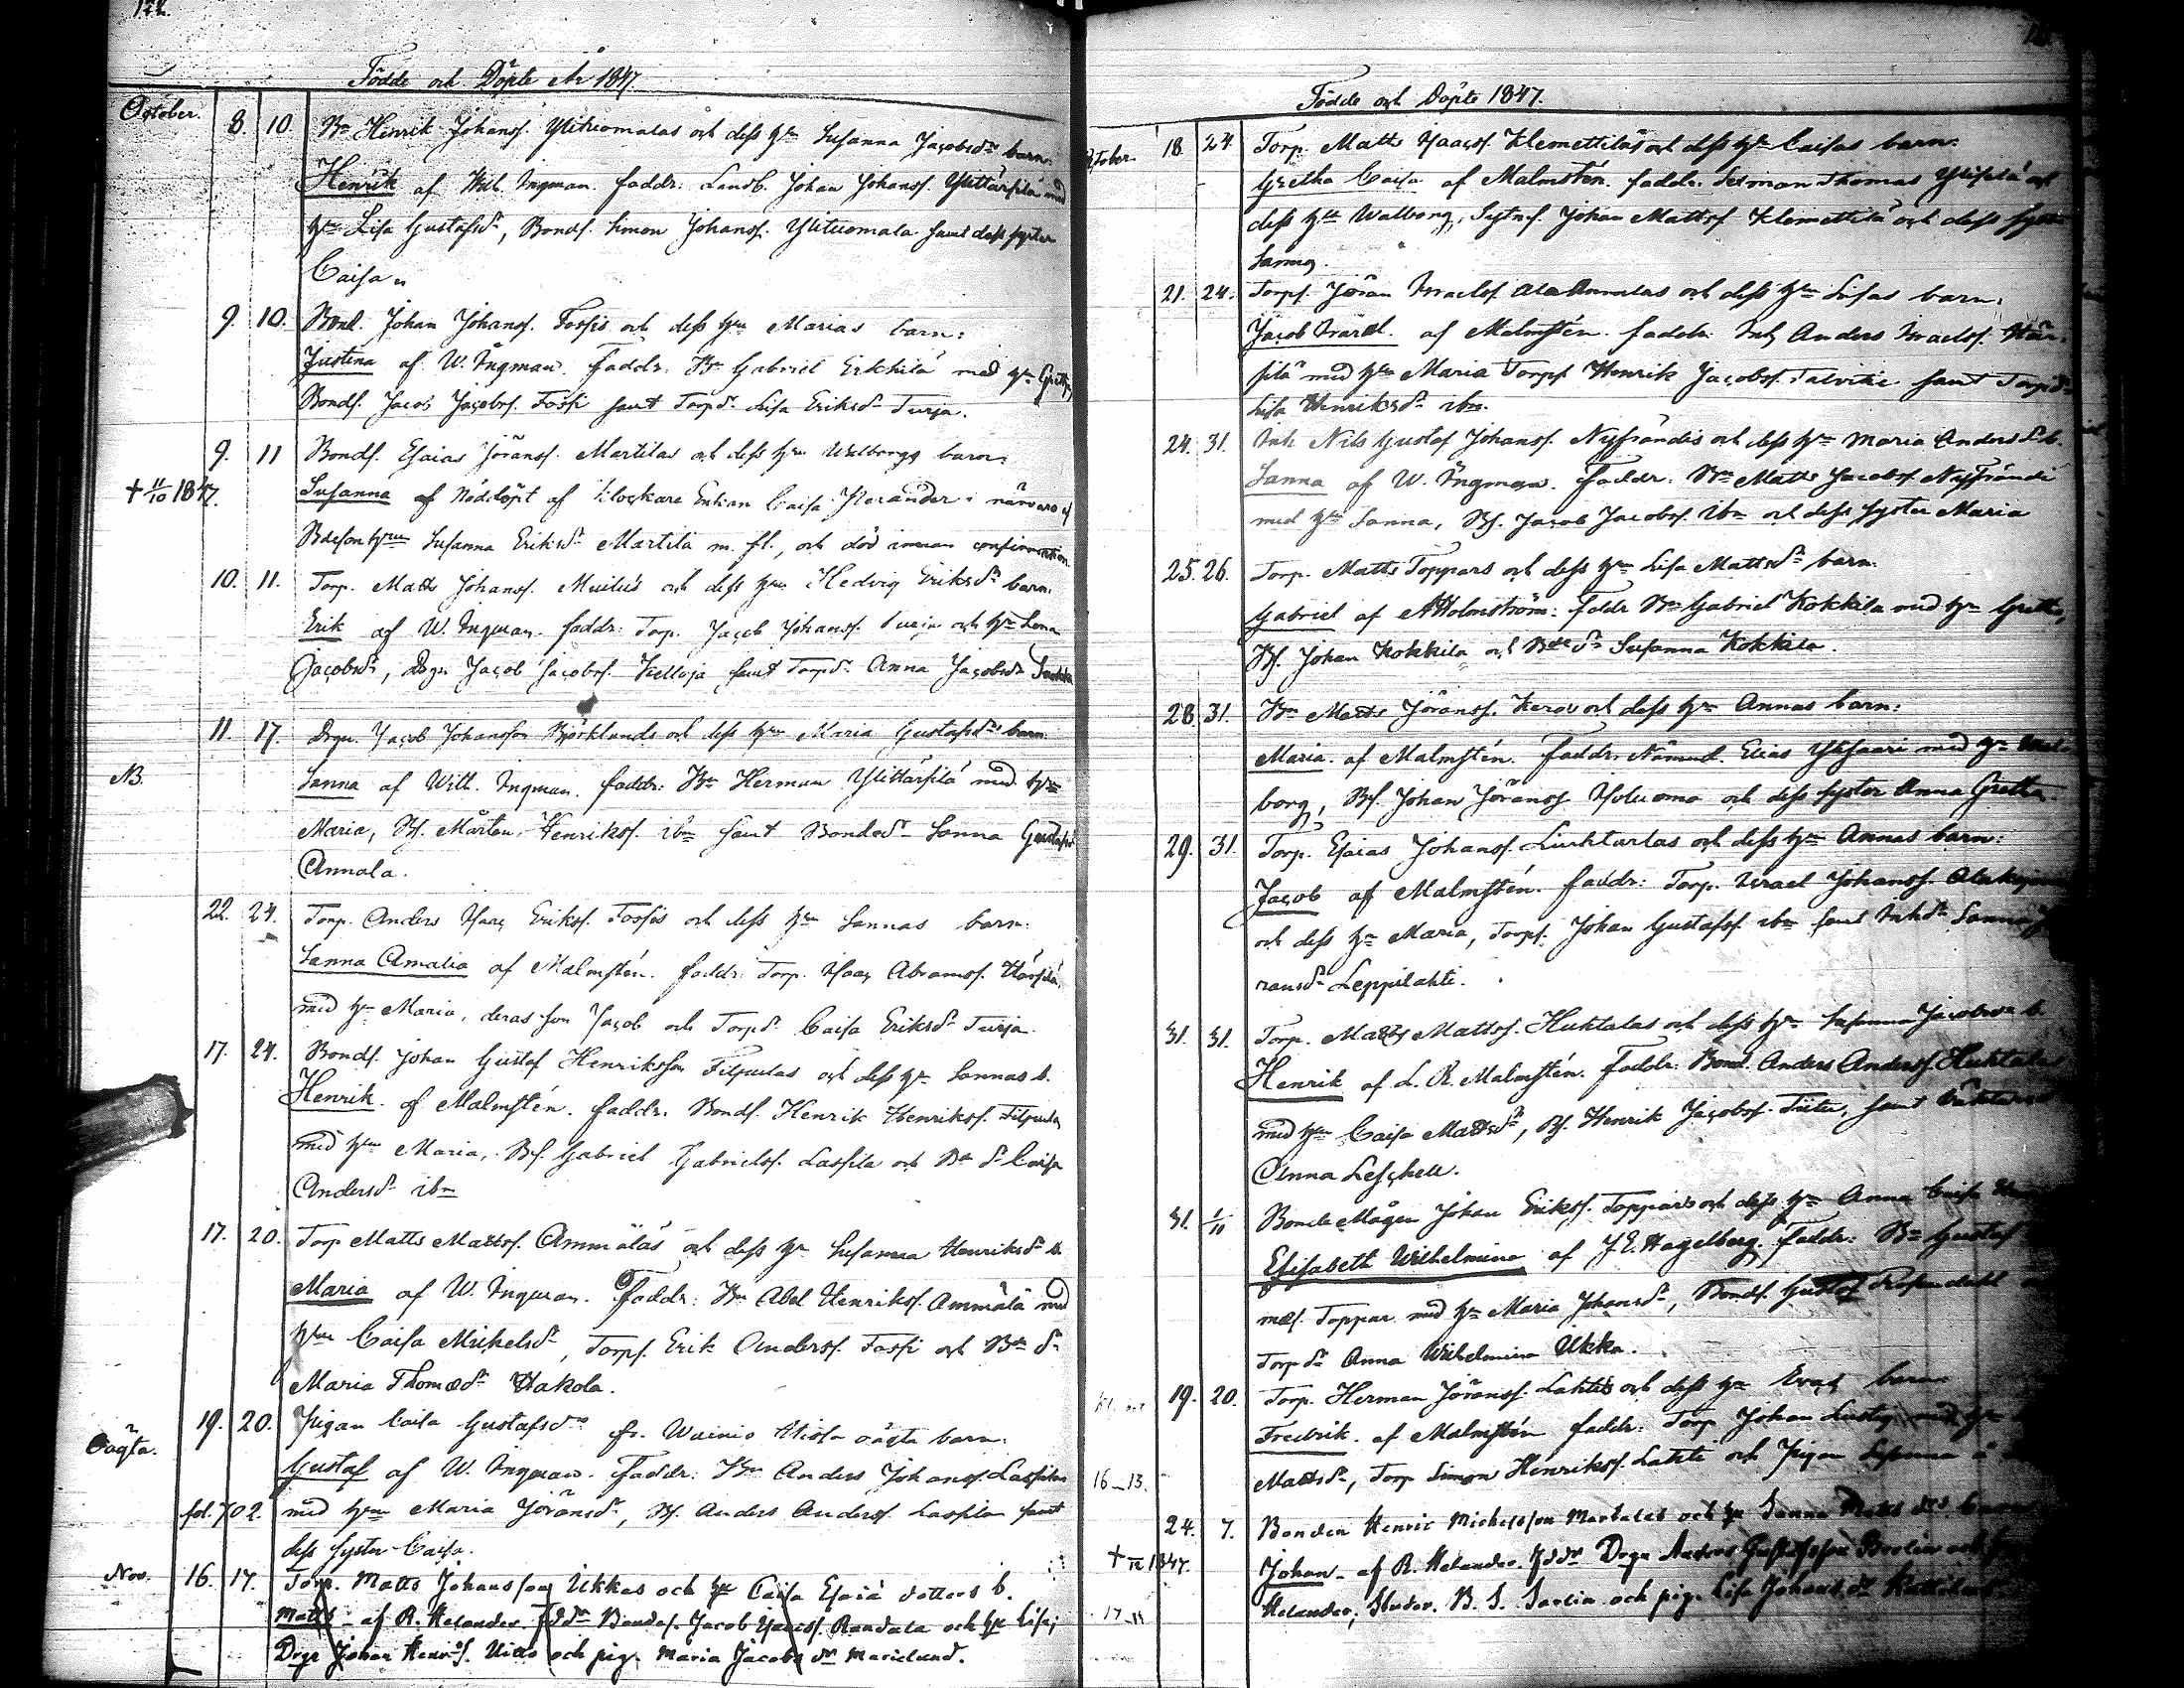 122.
Födde och Döpte År 1847.
October. 8. 10. Bn Henrik Johanss. Ylituomalas och dess hu Susanna Jacobsdr barn:
Henrik af Wil. Ingman. faddr: Landb. Johan Johanss. Ylittärsilä med
hu Lisa Gustafsdr, Bonds. Simon Johanss. Ylituomala samt dess syster
Caisa
9. 10. Bond. Johan Johanss. Fossis och dess hu Marias barn:
Justina af W. Ingman. Faddr. Bn Gabriel Erkkilä med hu Gretha
Bonds. Jacob Jacobss. Fossi samt Torpdr Lisa Eriksdr Turja.
9. 11 Bonds. Esaias Jöranss. Martilas och dess hu Walborgs barn:
+ 11/10 1847. Susanna af Nöddöpt af Klockare Enkan Caisa i närvaro af
hustrun Susanna Eriksdr Martila m. fl., och död innan confirmation.
10. 11. Torp. Matts Johanss. och dess hu Hedvig Eriksdr barn.
Erik af W. Ingman. faddr: Torp. Jacob Johanss. och hu Lena
Jacobsdr, Drgn Jacob Jacobss. Kelloja samt Torpdr Anna Jacobsdr
11. 17. Drgn. Jacob Johansson Björklunds och dess hu Maria Gustafsdr barn
NB. Sanna af Wilh. Ingman. faddr: Bn Herman Ylittärsilä med hu
Maria, Bs. Mårten Henrikss. ibm samt Bondedr Sanna Gustafsdr
Annala.
22. 24. Torp. Anders Isaac Erikss. Fossis och dess hu Sannas barn:
Sanna Amalia af Malmstén. faddr: Torp. Isaac Abramss. Härsilä
med hu Maria, deras son Jacob och Torpdr Caisa Eriksdr Turja.
17. 24. Bonds. Johan Gustaf Henriksson Filpulas och dess hu Sannas b.
Henrik. af Malmstén. faddr. Bonds. Henrik Henrikss. Filpula
med hu Maria, Bs. Gabriel Gabrielss. Lassila och Bn dr Caisa
Andersdr ibm
17. 20. Torp Matts Mattss. Ammäläs och dess hu Susanna Henriksdr b.
Maria af W. Ingman. Faddr: Bn Abel Henrikss. Ammälä med
hu Caisa Mickelsdr, Torps. Erik Anderss. Fossi och Bn dr
Maria Thomædr Hakola.
Oägta. 19. 20. Pigan Caisa Gustafsdr fr. Wainio oägta barn:
Gustaf af W. Ingman. Faddr: Bn Anders Johanss. Lassilas
fol. 702. med hu Maria Jöransdr, Bs. Anders Anderss. Lassila samt
dess syster Caisa.
Nov. 16. 17. Torp. Matts Johansson Ukkas och hu Caisa Esaiæ dotters b.
Matts - af R. Helander. Fddr Bondes. Jacob Jacobs. Randala och hu Lisa,
Drge Johan Henrs. Uitto och pig. Maria Jacobs dr Marielund.
Födde och Döpte 1847.
October. 18 24 Torp. Matts Isaacss. Klemettiläs och dess hu Caisas barn:
Gretha Caisa af Malmstén. faddr. Sexman Thomas Ylisilä och
dess hu Walborg, Sytns. Johan Mattss. Klemettilä och dess syster
Sanna.
21. 24. Torps. Jöran Israelss. Ala Annalas och dess hu Lisas barn:
Jacob Israel. af Malmstén. faddr. Inh Anders Israelss. Här-
silä med hu Maria Torps Henrik Jacobss. Talvitie samt Torpdr
Lisa Henriksdr ibm.
24. 31. Inh Nils Gustaf Johanss. Nyfrändis och dess hu Maria Andersdr b.
Sanna af W. Ingman. Faddr: Bn Matts Jacobss. Nyfrändi
med hu Sanna, Bs. Jacob Jacobss. ibm och dess syster Maria
25. 26. Torp. Matts Toppars och dess hu Lisa Mattsdr barn.
Gabriel af A Holmström: Faddr Bn Gabriel Kokkila med hu Gretha,
Bs. Johan Kokkila och Bdr Susanna Kokkila.
28 31. Bn Matts Jöranss. Keros och dess hu Annas barn:
Maria. af Malmstén. Faddr. Nämnd. Elias Ylisaari med hu Wal-
borg, Bs. Johan Jöranss Isoluoma och dess syster Anna Gretha.
29. 31. Torp. Esaias Johanss. Luhtalas och dess hu Annas barn:
Jacob af Malmstén. faddr: Torp. Israel Johanss.
och dess hu Maria, Torps. Johan Gustafss. ibm samt Inhdr Sanna Jö-
ransdr Leppilahti.
31. 31. Torp. Matts Mattss. Huhtalas och dess hu Susanna Jacobsdr b.
Henrik af L. R. Malmstén. Faddr: Bond. Anders Anderss. Huhtala
med hu Caisa Mattsdr, Bs. Henrik Jacobss. samt
Anna Leschell.
31. 1/11 Bonde Mågen Johan Erikss. Toppars och dess hu Anna Caisa
Elisabeth Wilhelmina af J. E. Hagelberg. Faddr: Bn Gustaf
Toppar med hu Maria Johansdr, Bonds. Gustaf Rosendahl
Torpdr Anna Wilhelmina Ukka.
19. 20. Torp. Herman Jöranss. Lahtis och dess hu Evas barn
Fredrik. af Malmstén faddr: Torp Johan Lustig med hu
16-13. Mattsdr, Torp Simon Henrikss. Lahti och Pigan Susanna
24. 7. Bonden Henric Michelsson Martalas och hu Sanna Matts drs barn
+ 1847. Johan - af R. Helander. Fddr Drgn Anders Gustafsson Brolin och
17-11 Helander, Studer. B. S. Sarlin och pig. Lisa Johans dr